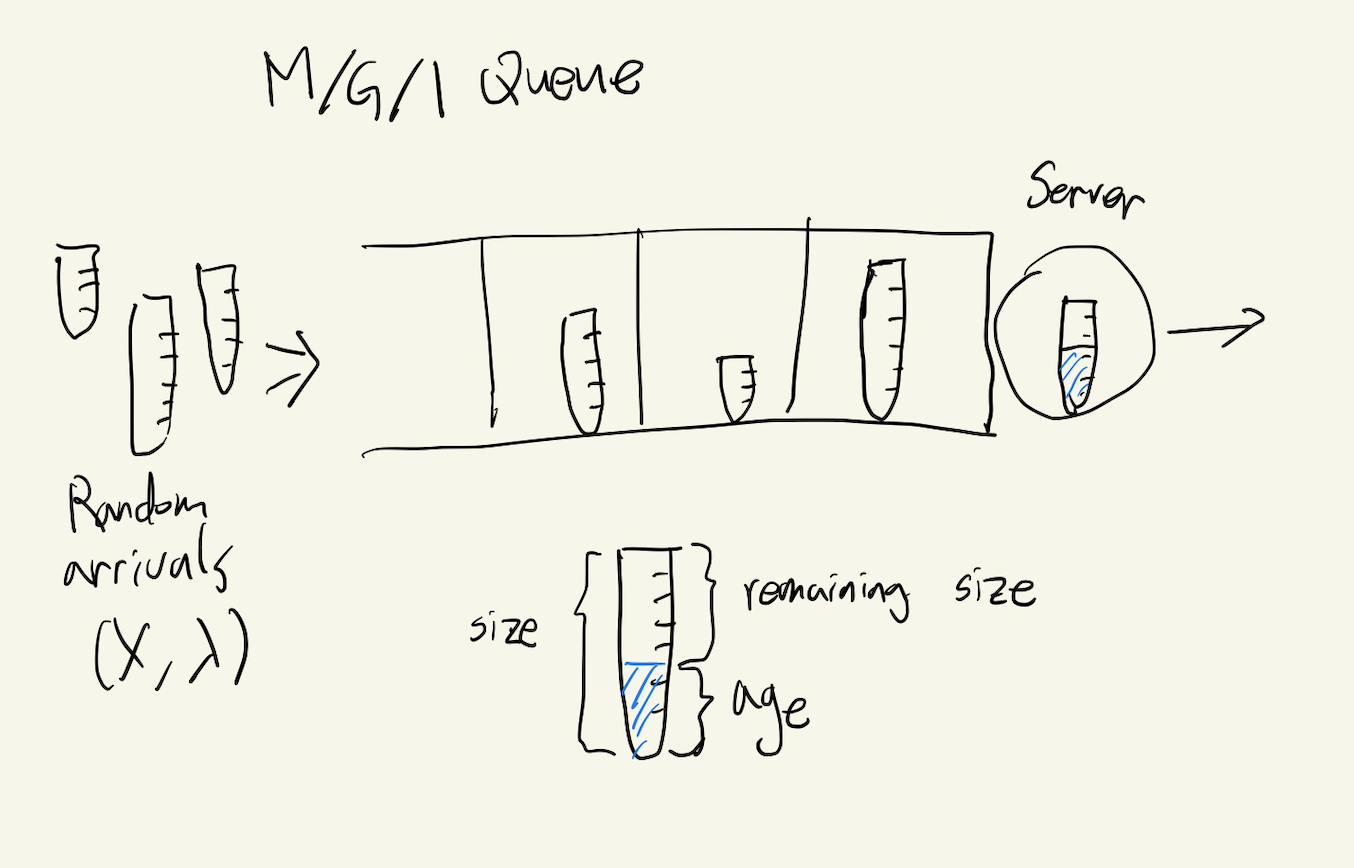 M/G/1 Queue
Server
Random
arrivals
(X, λ)
size
remaining size
age